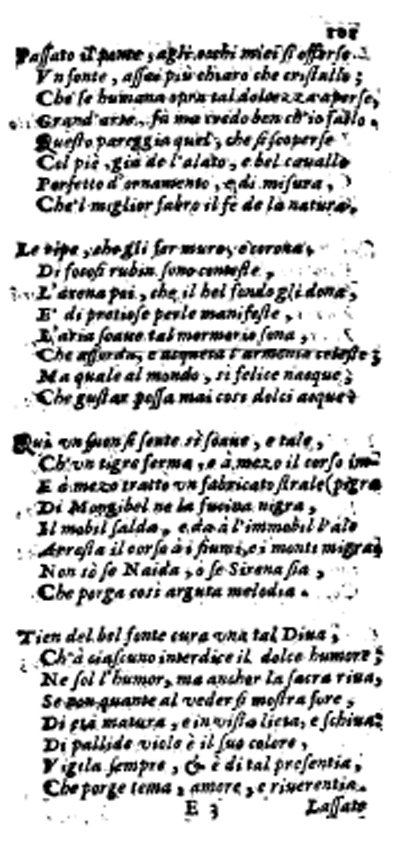 101
Passato il ponte, a gli occhi miei si offerse
Vn fonte, assai più chiaro che cristallo;
Che se humana opra tal dolcezza aperse,
Grand'arte fù ma credo ben ch'io fallo.
Questo pareggia quel, che si scoperse
Col piè, già de l'alato, e bel cauallo
Perfetto d'ornamento, e di misura,
Che'l miglior fabro il fè de la natura.
Le ripe, che gli far muro, e corona,
Di focosi rubin sono conteste,
L'arena poi, che il bel fondo gli dona,
E' di pretiose perle manifeste,
L'aria soaue tal mormorio sona,
Che assorda, e acqueta l'armonia celeste;
Ma quale al mondo, si felice nacque;
Che gustar possa mai cosi dolci acque?
Quà vn suon si sente sì soaue, e tale,
Ch'vn tigre ferma, e à mezo il corso im
E à mezo tratto vn fabricato strale (pigra
Di Mongibel ne la fucina nigra,
Il mobil salda, e da à l'immobil l'ale
Arresta il corso à i fiumi, e i monti migra
Non sò se Naida, o se Sirena sia,
Che porga cosi arguta melodia.
Tien del bel fonte cura vna tal Diua,
Ch'à ciascuno interdice il dolce humore;
Ne sol l'humor, ma anchor la sacra riua,
Se non quante al veder si mostra fore,
Di età matura, e in vista lieta, e schiua
Di pallide viole è il suo colore,
Vigila sempre, & è di tal presentia,
Che porge tema, amore, e riuerentia.
E 3 Lassato